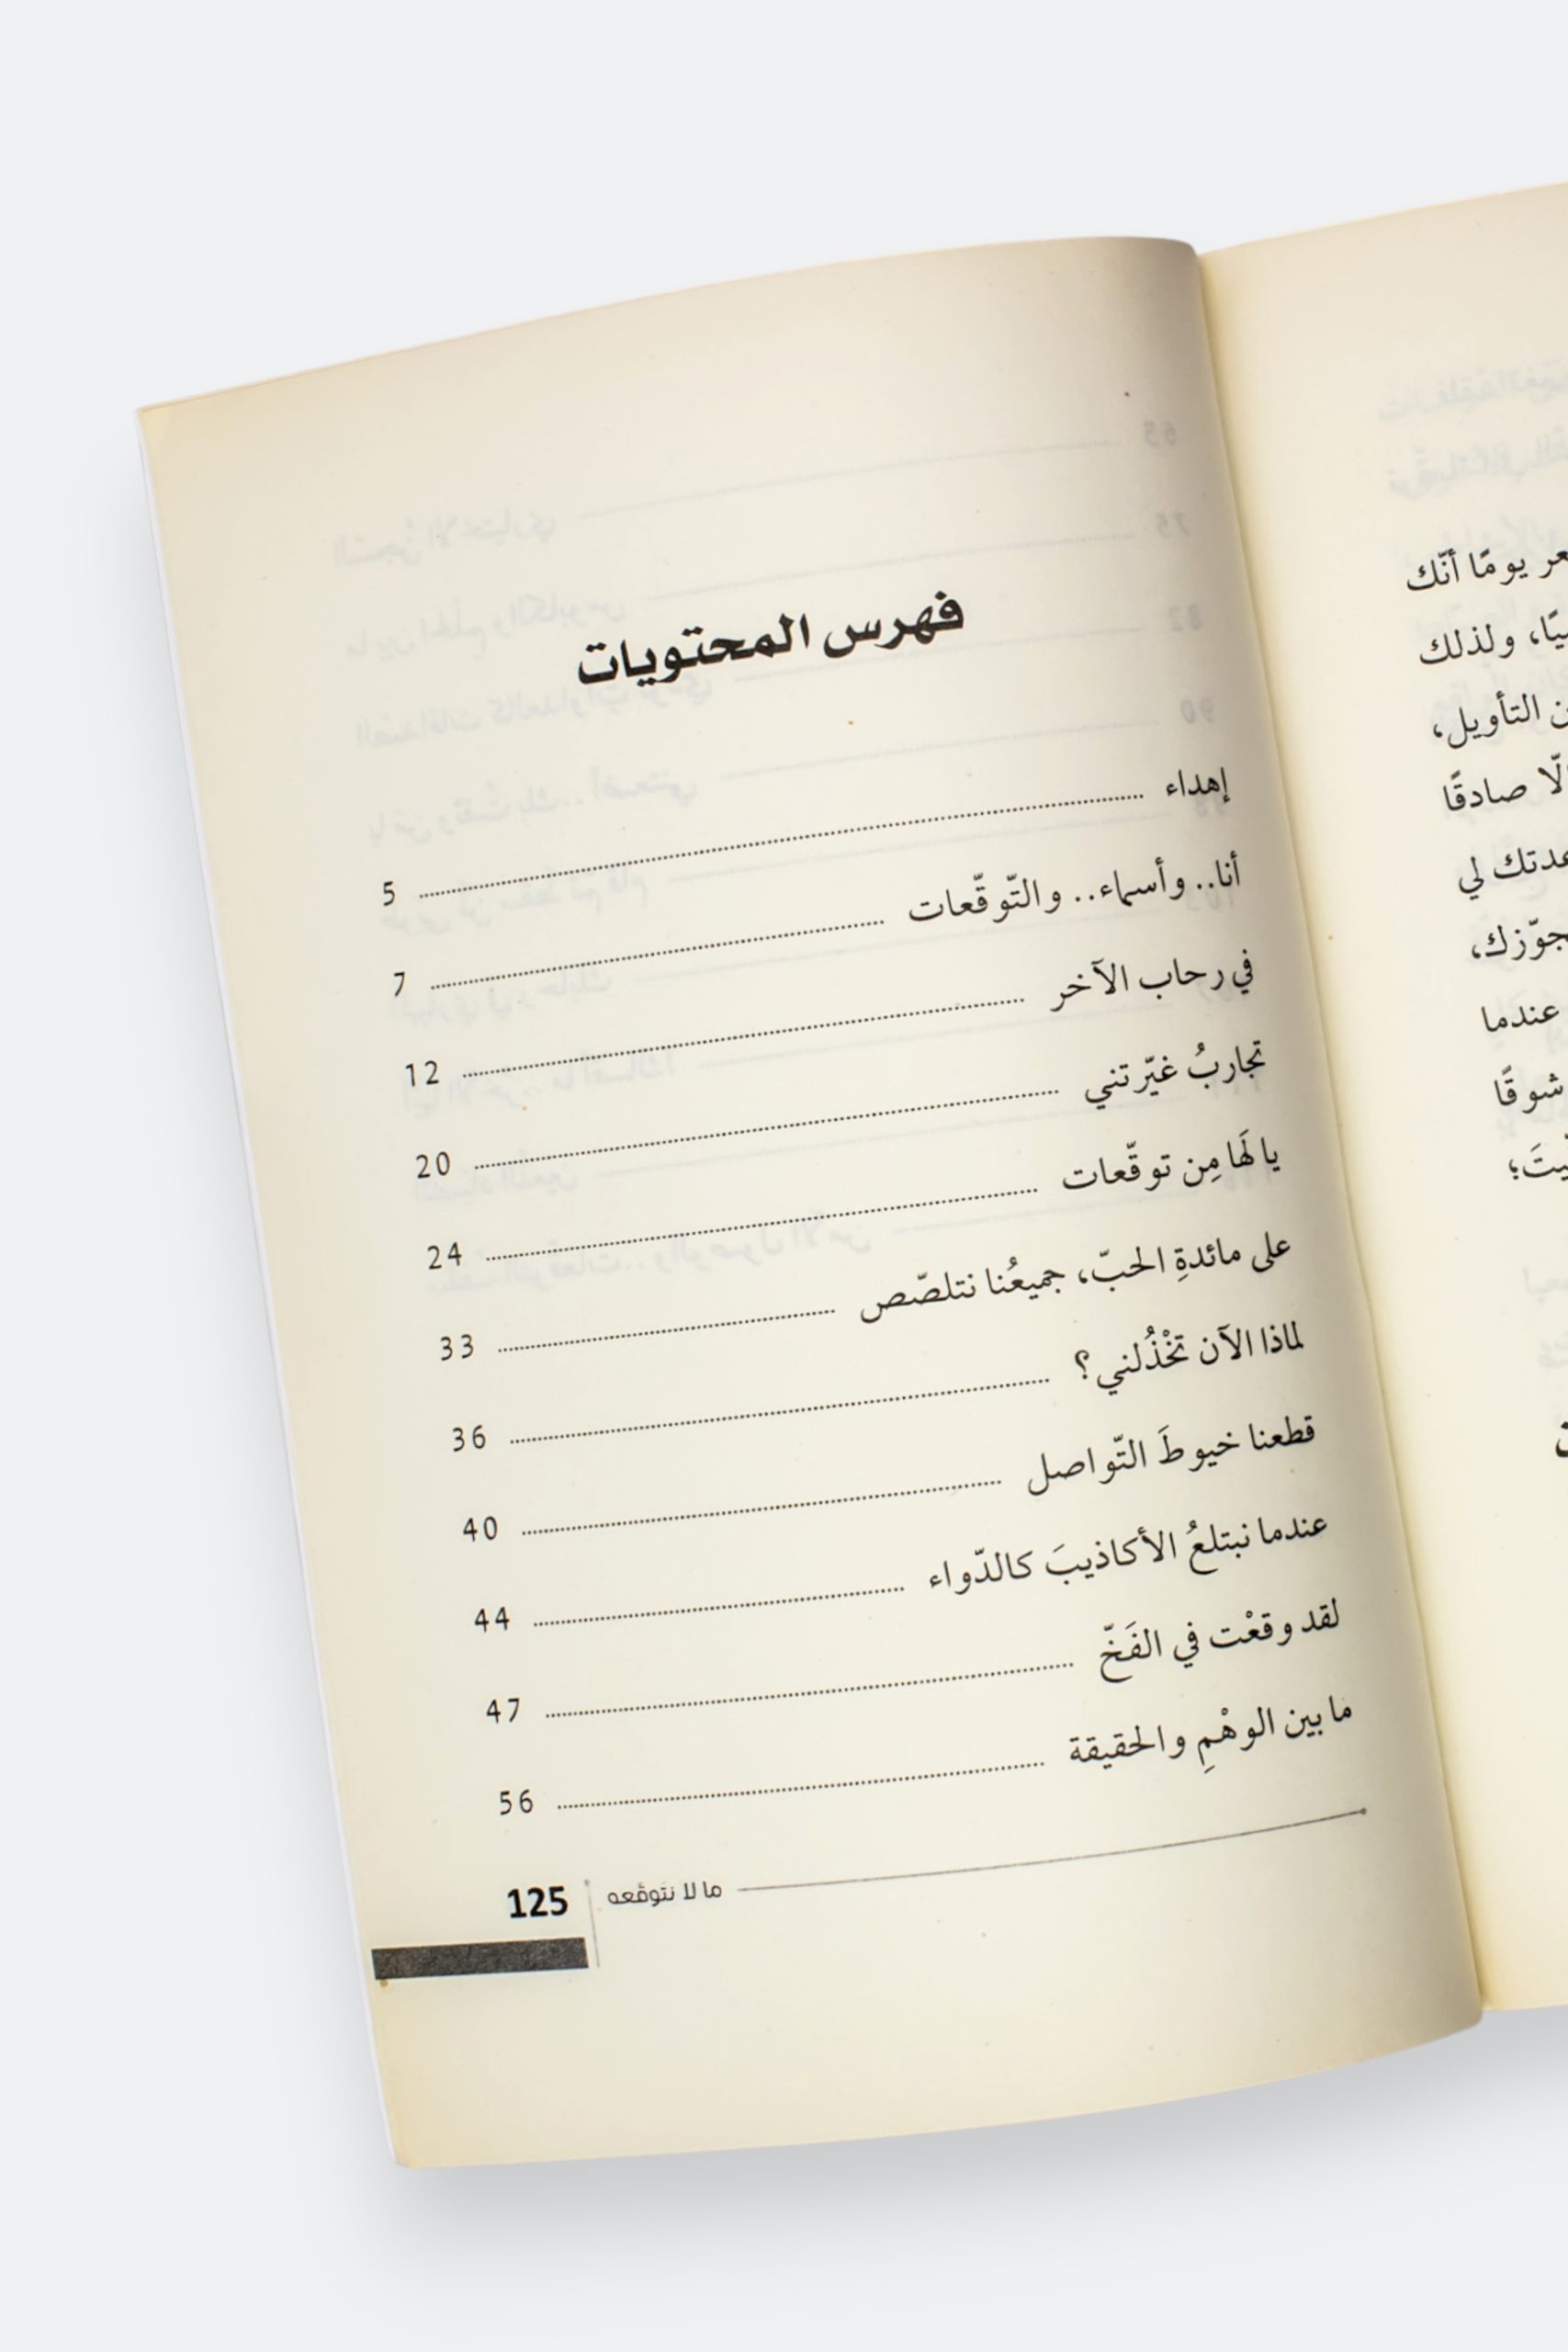 فهرس المحتويات
إهداء ........ 5
أنا.. وأسماء.. والتّوقّعات ........ 7
في رحاب الآخر ........ 12
تجاربُ غيّرتني ........ 20
يا لَهَا مِن توقّعات ........ 24
على مائدةِ الحبّ، جميعُنا نتلصّص ........ 33
لماذا الآن تَخْذُلني؟ ........ 36
قطعنا خيوطَ التّواصل ........ 40
عندما نبتلعُ الأكاذيبَ كالدّواء ........ 44
لقد وقعْت في الفَخّ ........ 47
ما بين الوهْمِ والحقيقة ........ 56
ما لا نتوقّعه 125
يومًا أنّك
ولذلك
التأويل،
صادقًا
لي
عندما
شوقًا